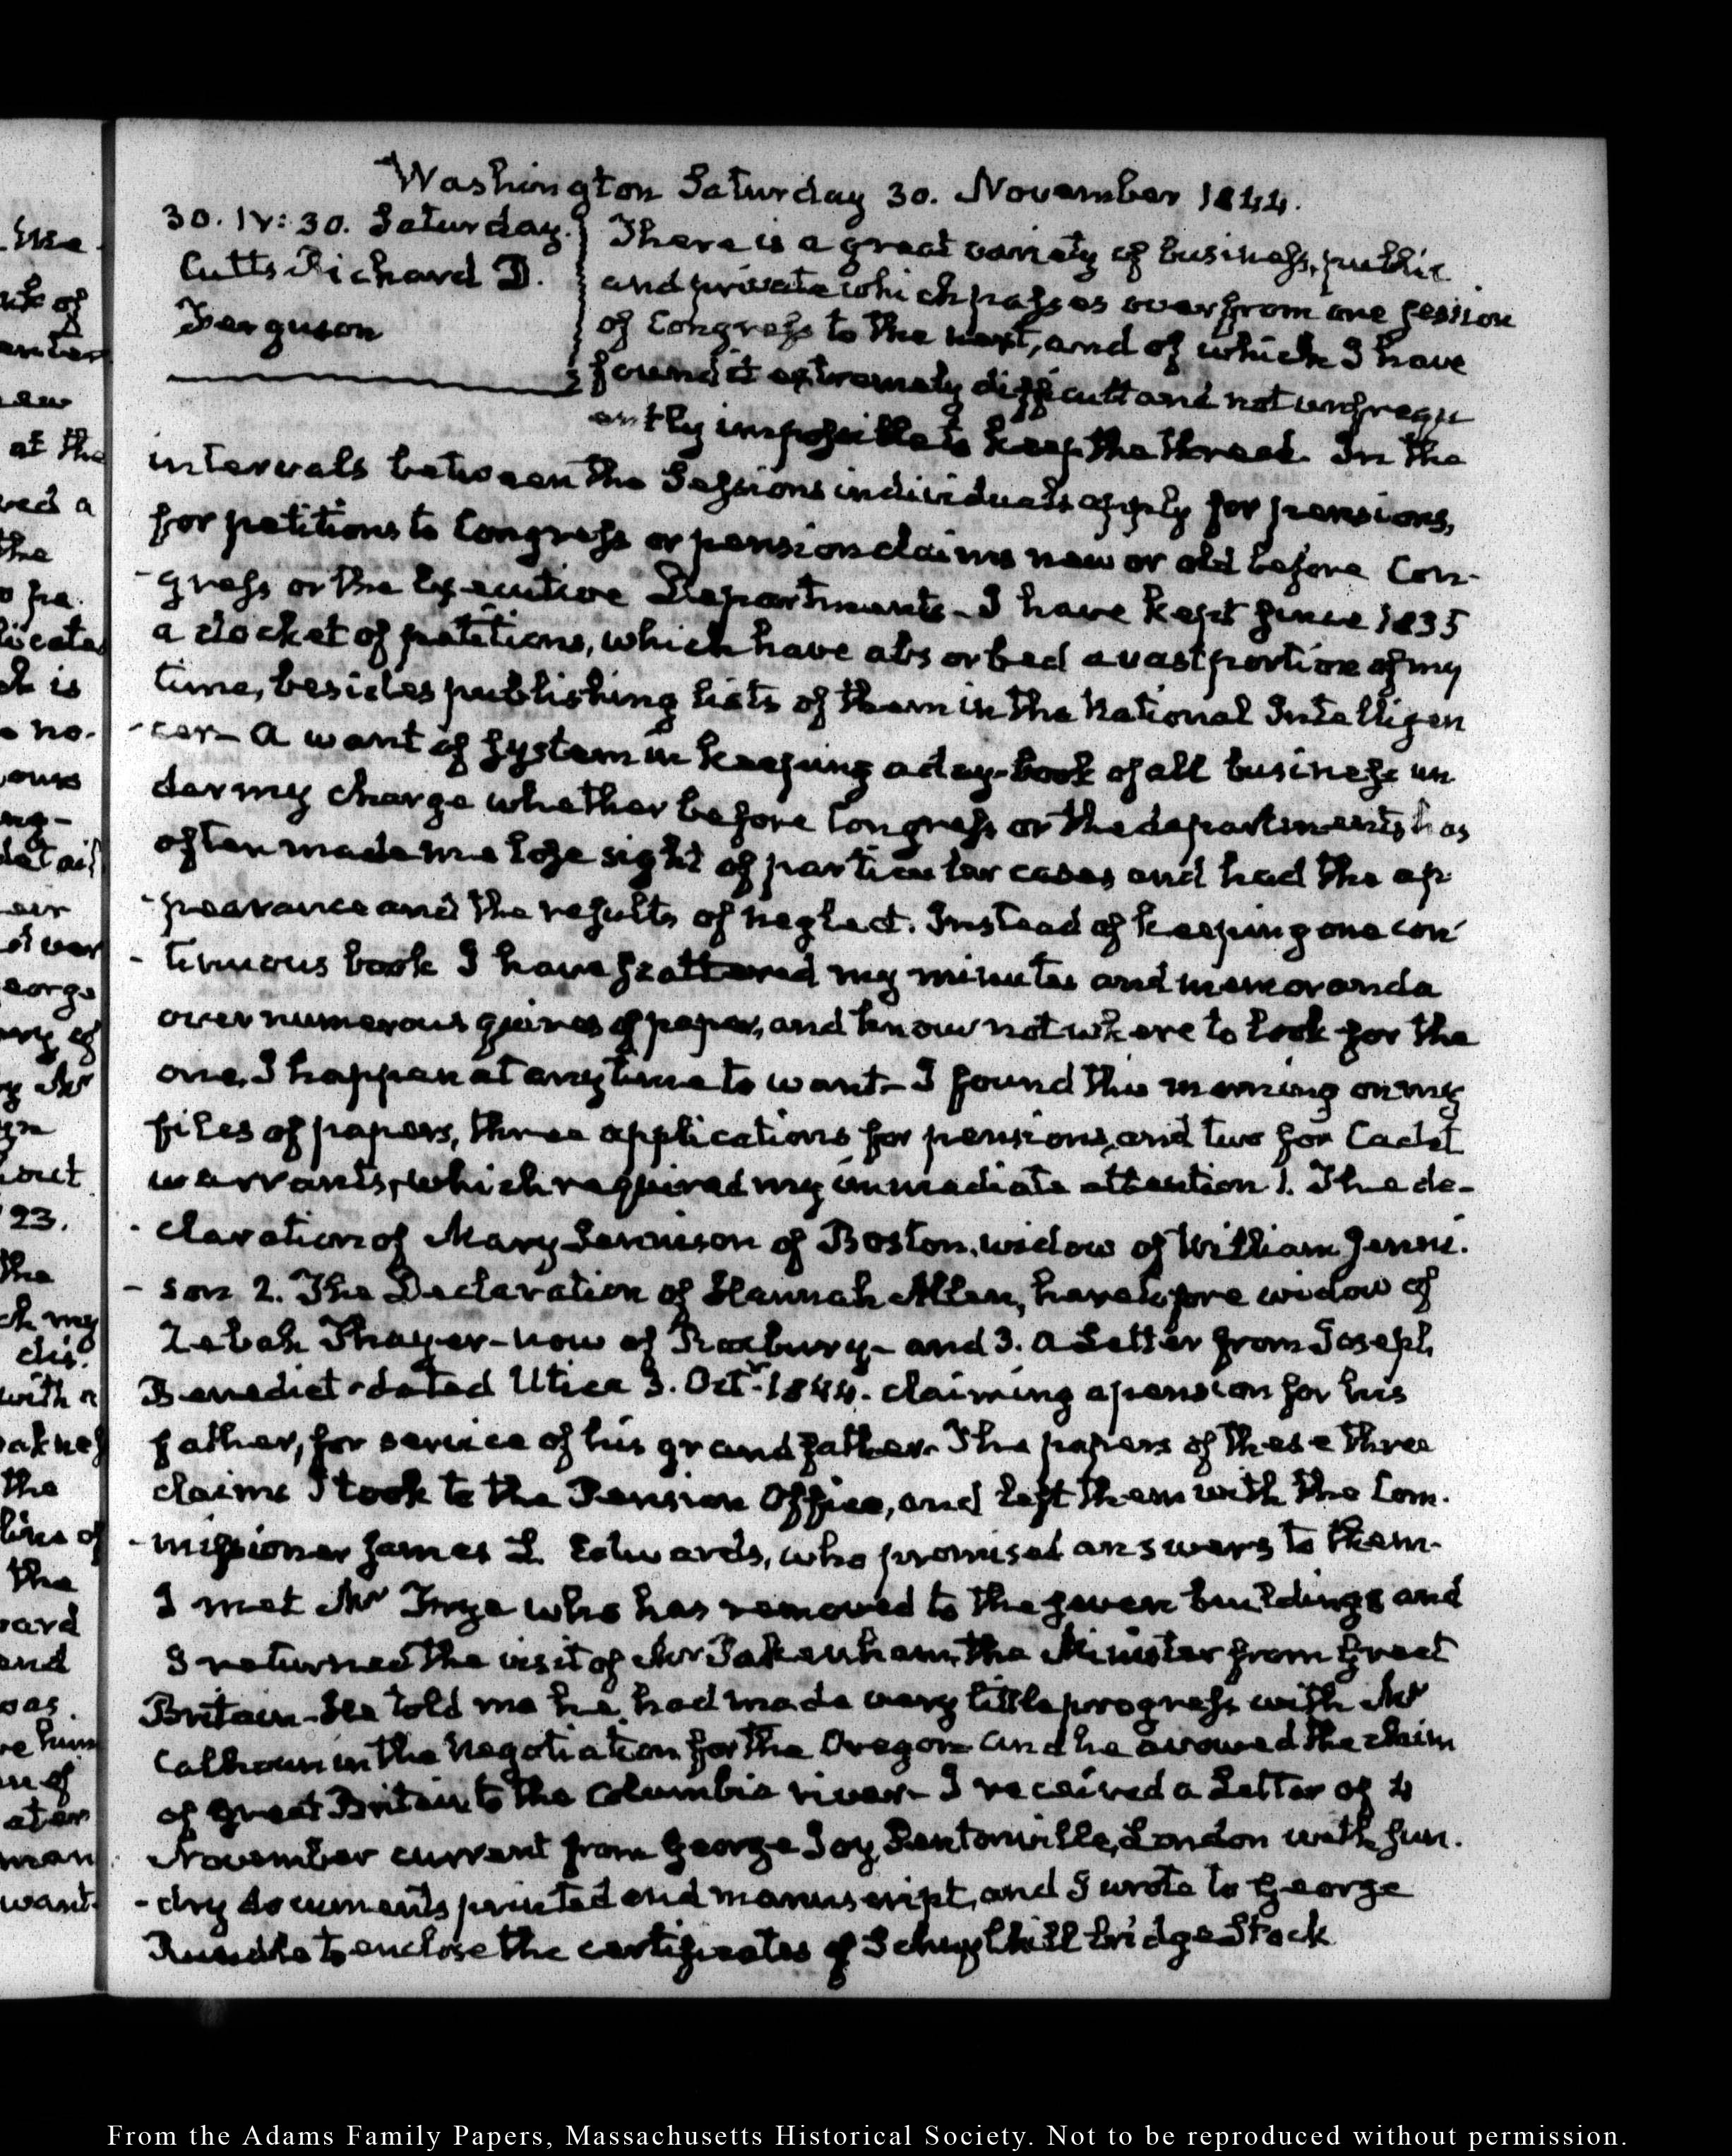 Washington Saturday 30. November 1844.
30. IV: 30. Saturday.
Cutts Richard D.
Ferguson
There is a great variety of business, public
and private which passes over from one session
of Congress to the next, and of which I have
found it extremely difficult and not unfrequ
ently impossible to keep the thread. In the
intervals between the Sessions individuals apply for pensions,
for petitions to Congress or pension claims new or old before Con-
-gress or the Executive Departments - I have kept since 1835
a docket of petitions, which have absorbed a vast portion of my
time, besides publishing lists of them in the National Intelligen
-cer - A want of system in keeping a day-book of all business un
der my charge whether before Congress or the departments has
often made me lose sight of particular cases and had the ap
-pearance and the results of neglect. Instead of keeping one con
-tinuous book I have scattered my minutes and memoranda
over numerous quires of paper, and know not where to look for the
one, I happen at any time to want - I found this morning on my
files of papers, three applications for pensions, and two for Cadet
warrants, which required my immediate attention 1. The de-
-claration of Mary Jennison of Boston, widow of William Jenni.
-son 2. The Declaration of Hannah Allen, heretofore widow of
Zebah Thayer - now of Roxbury - and 3. a Letter from Joseph
Benedict - dated Utica 3. Octr. 1844. claiming a pension for his
father, for service of his grandfather. The papers of these three
claims I took to the Pension Office, and left them with the Com.
-missioner James L. Edwards, who promised answers to them -
I met Mr Inge who has removed to the seven buildings and
I returned the visit of Mr Pakenham, the Minister from Great
Britain - He told me he had made very little progress with Mr
Calhoun in the Negotiation for the Oregon and he avowed the claim
of Great Britain to the Columbia river - I received a Letter of 4
November current from George Joy, Pentonville, London with sun.
-dry documents printed and manuscript, and I wrote to George
Rundle to enclose the certificates of Schuylkill bridge Stock
From the Adams Family Papers, Massachusetts Historical Society. Not to be reproduced without permission.